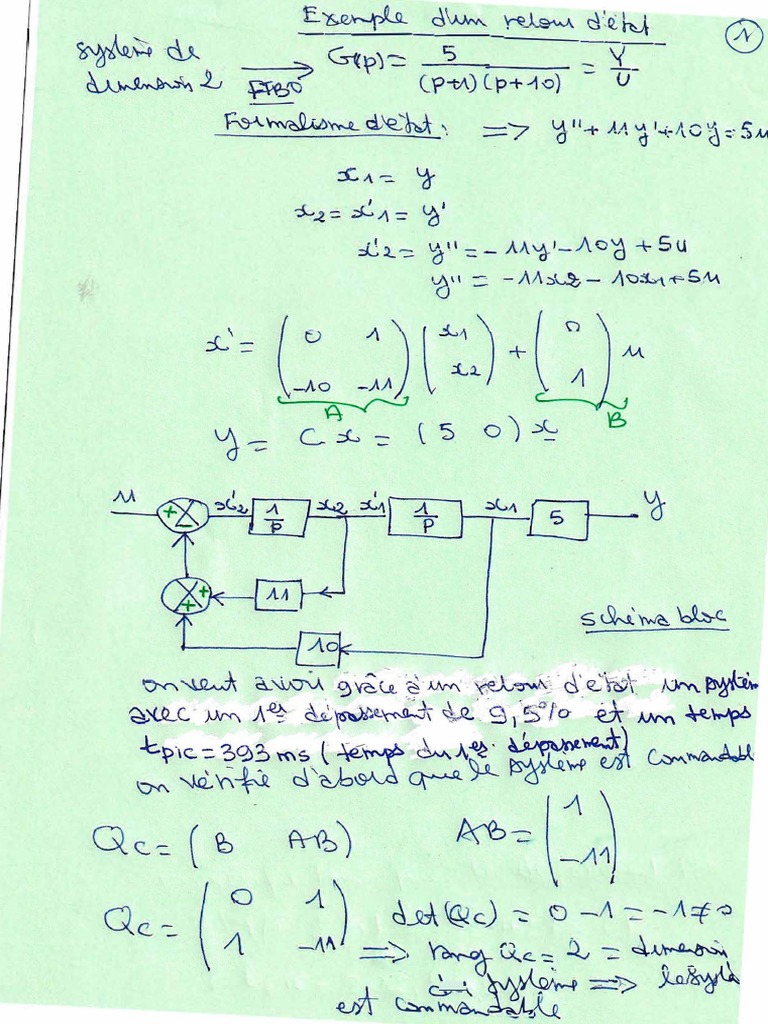 Exemple d'un retour d'état
1
système de
dimension 2 FTBO G(p) = 5 / (p+1)(p+10) = Y/U
Formalisme d'état : => y'' + 11y' + 10y = 5u
x1 = y
x2 = x'1 = y'
x'2 = y'' = -11y' - 10y + 5u
y'' = -11x2 - 10x1 + 5u
x' = ( 0 1 ) ( x1 ) + ( 0 ) u
( -10 -11 ) ( x2 ) ( 1 )
A B
y = C x = ( 5 0 ) x
u + - x'2 1/p x2 x'1 1/p x1 5 y
+ + 11
10
schéma bloc
on veut avoir grâce à un retour d'état un systèm
avec un 1er dépassement de 9,5% et un temps
tpic = 393 ms ( temps du 1er dépassement )
on vérifie d'abord que le système est commandable
Qc = ( B AB ) AB = ( 1 )
( -11 )
Qc = ( 0 1 ) det(Qc) = 0 - 1 = -1 ≠ 0
( 1 -11 ) => rang Qc = 2 = dimension
système => le systè
est commandable